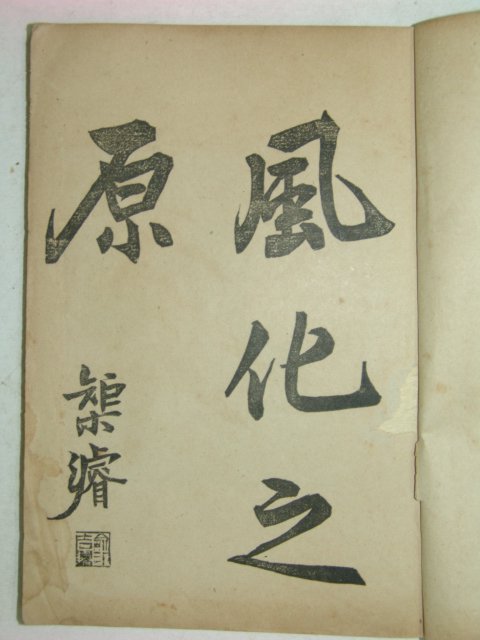 風化之
原
榘濬